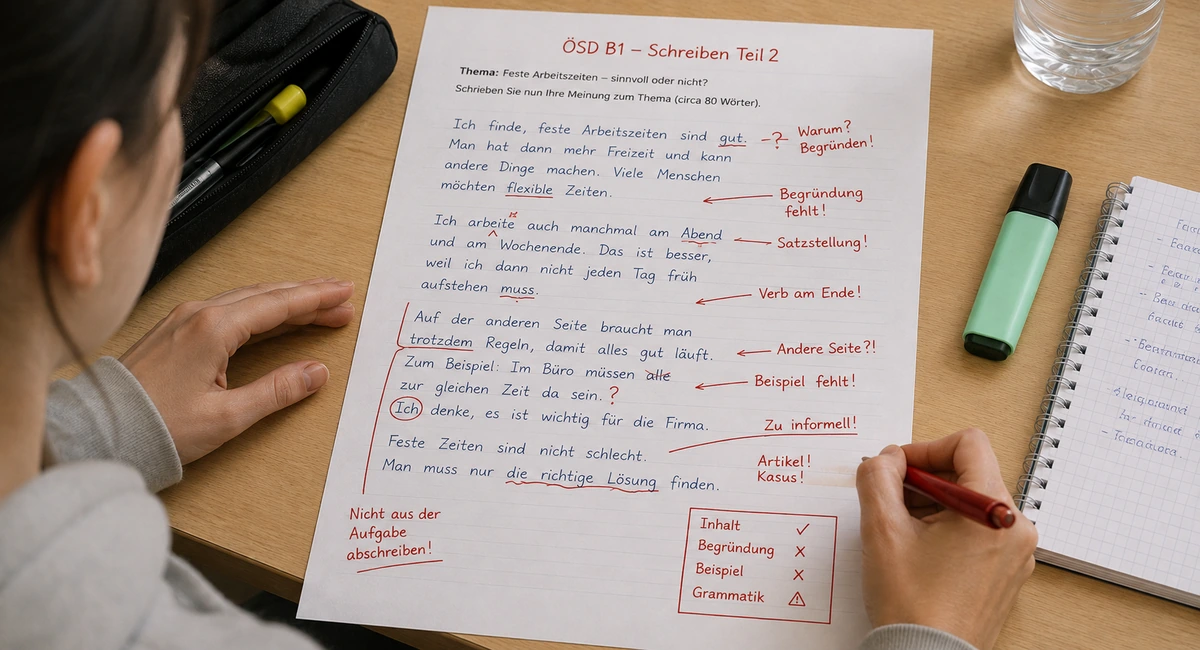 ÖSD B1 – Schreiben Teil 2
Thema: Feste Arbeitszeiten – sinnvoll oder nicht?
Schrieben Sie nun Ihre Meinung zum Thema (circa 80 Wörter).
Ich finde, feste Arbeitszeiten sind gut. –?– Warum?
Begründen!
Man hat dann mehr Freizeit und kann
andere Dinge machen. Viele Menschen
möchten flexible Zeiten.
Begründung
fehlt!
Ich arbeite auch manchmal am Abend
Satzstellung!
und am Wochenende. Das ist besser,
weil ich dann nicht jeden Tag früh
aufstehen muss.
Verb am Ende!
Auf der anderen Seite braucht man
trotzdem Regeln, damit alles gut läuft.
Andere Seite?!
Zum Beispiel: Im Büro müssen alle
Beispiel fehlt!
zur gleichen Zeit da sein. ?
Ich denke, es ist wichtig für die Firma.
Zu informell!
Feste Zeiten sind nicht schlecht.
Artikel!
Kasus!
Man muss nur die richtige Lösung finden.
Nicht aus der
Aufgabe
abschreiben!
Inhalt ✓
Begründung x
Beispiel x
Grammatik ⚠